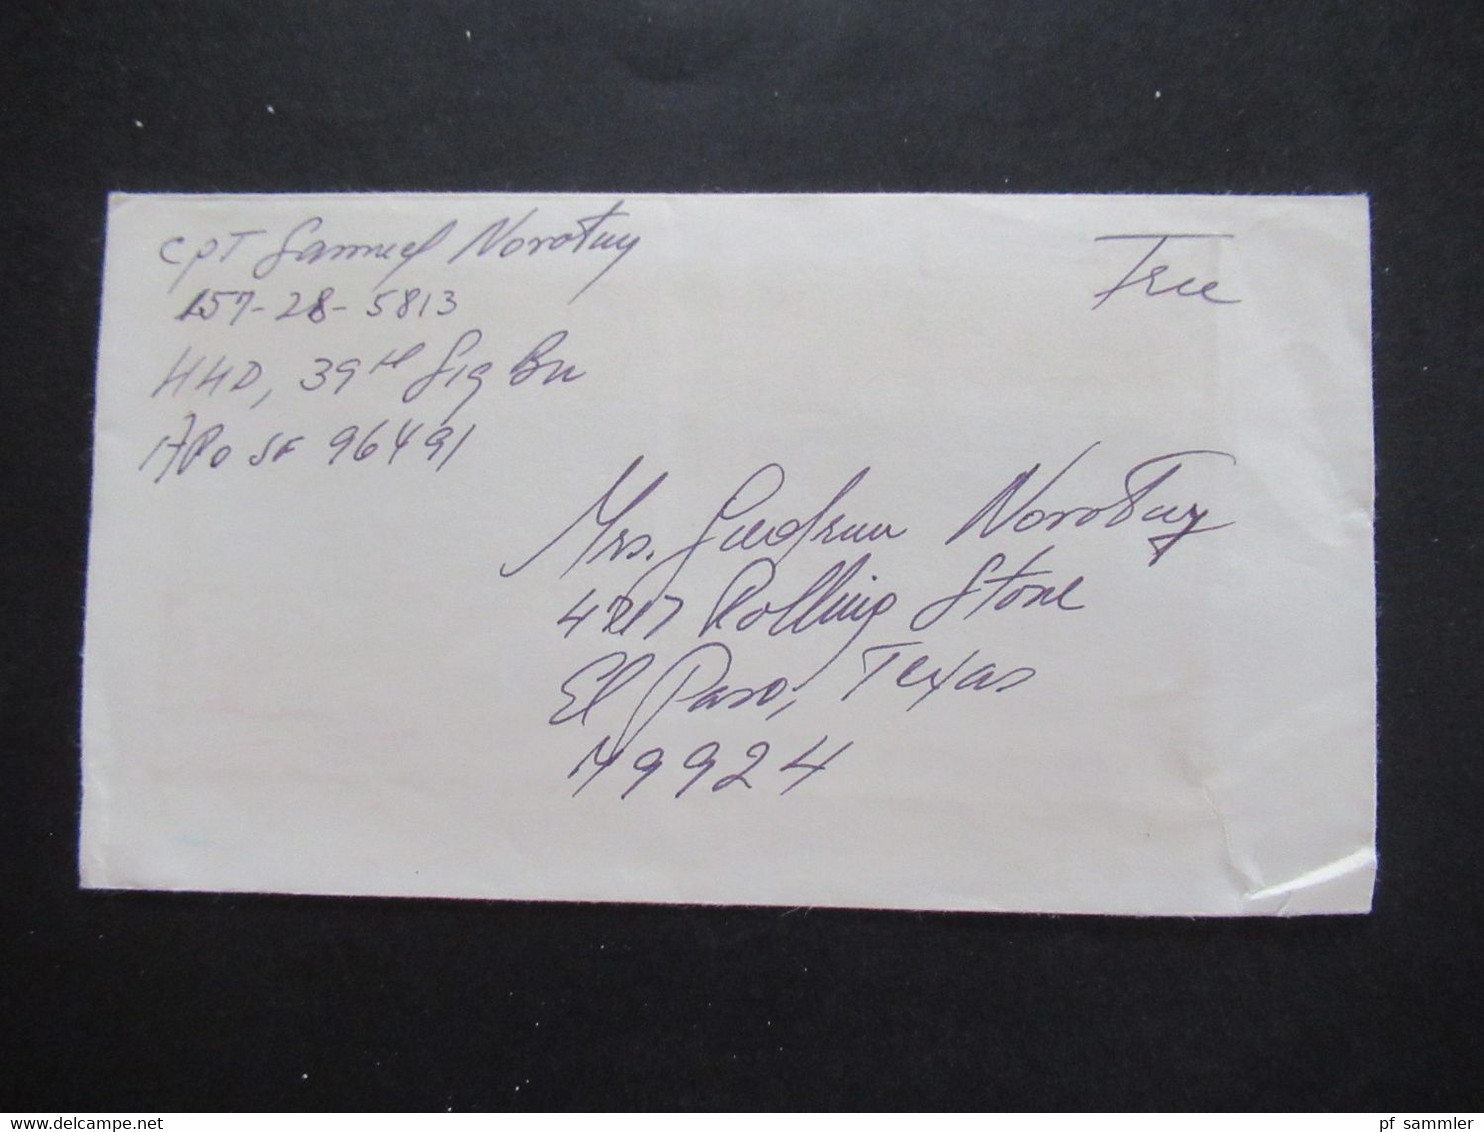 CPT Samuel Novotny
157-28-5813
HHD, 39th Sig Bn
APO SF 96491
Free
Mrs. Gudrun Novotny
Rolling Stone
El Paso, Texas
79924
delcampe.net
pf_sammler